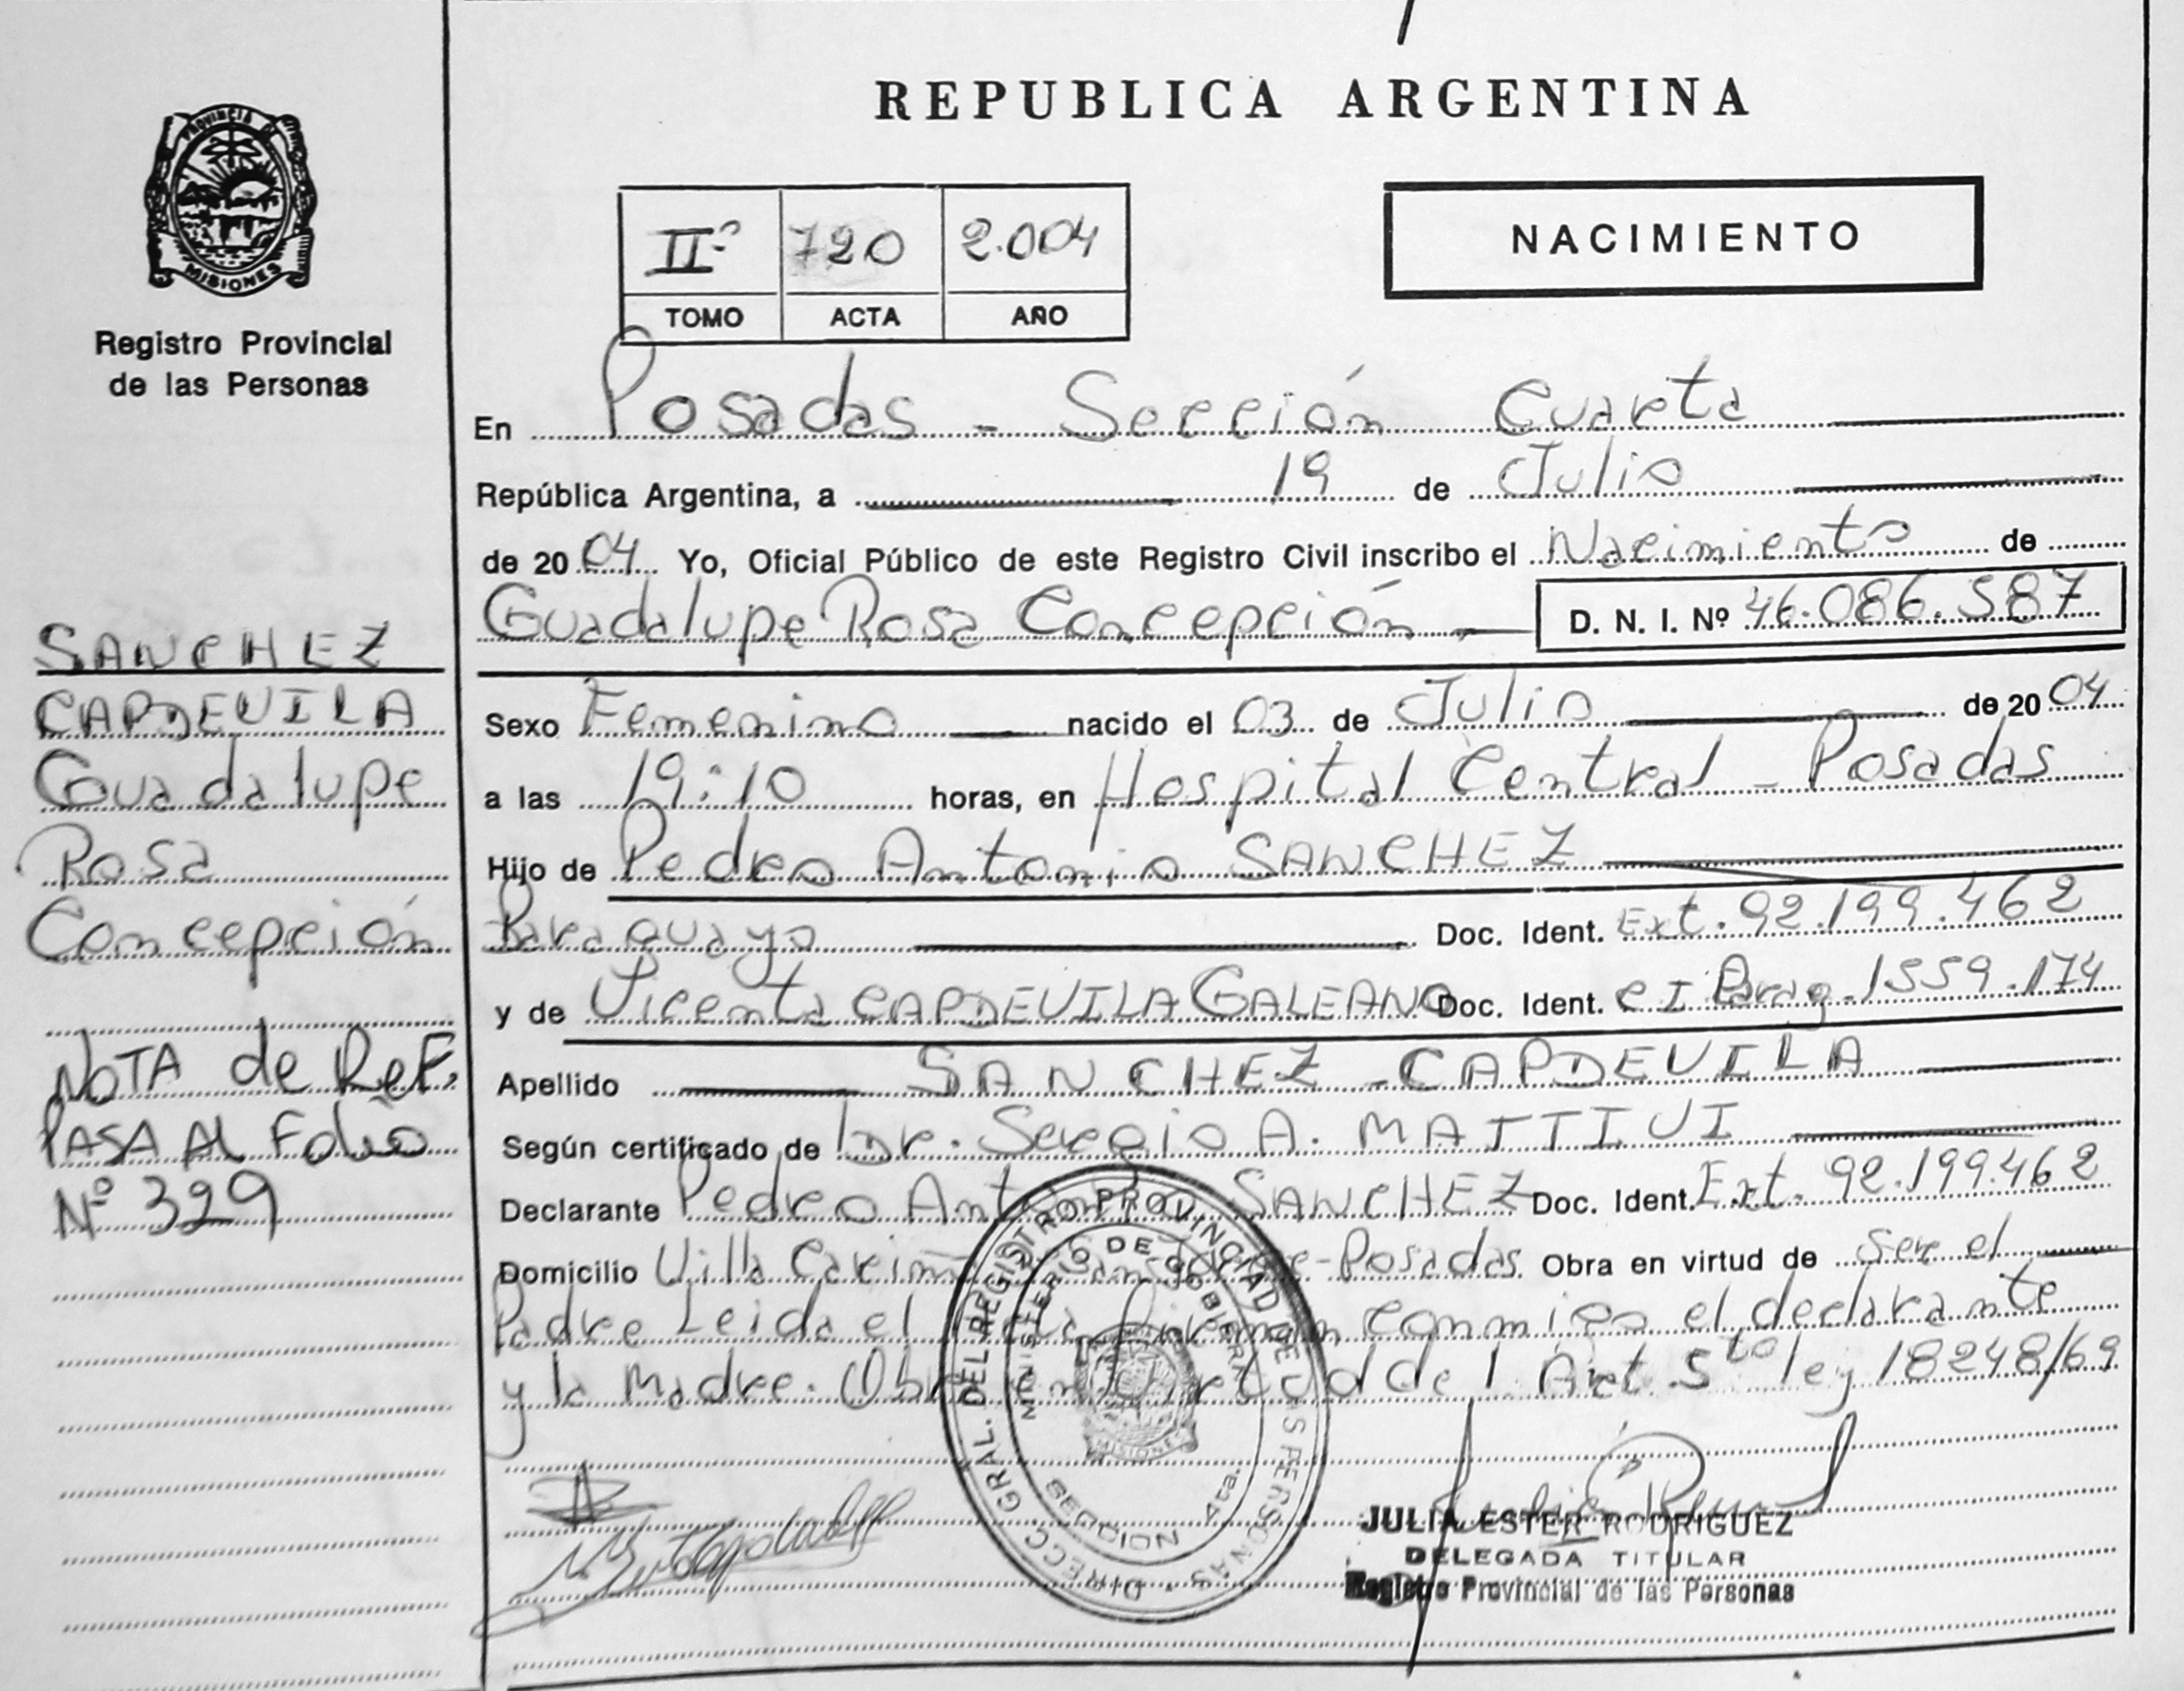 REPUBLICA ARGENTINA
PROVINCIA D
MISIONES
Registro Provincial
de las Personas
IIº 720 2.004
TOMO ACTA AÑO
NACIMIENTO
En Posadas - Sección Cuarta
República Argentina, a 19 de Julio
de 2004 Yo, Oficial Público de este Registro Civil inscribo el Nacimiento de
Guadalupe Rosa Concepción D. N. I. Nº 46.086.587
Sexo Femenino nacido el 03 de Julio de 2004
a las 19:10 horas, en Hospital Central - Posadas
Hijo de Pedro Antonio SANCHEZ
Paraguayo Doc. Ident. Ext. 92.199.462
y de Vicenta CAPDEVILA GALEANO Doc. Ident. CI Parag. 1559.174
Apellido SANCHEZ - CAPDEVILA
Según certificado de Dr. Sergio A. MATTIVI
Declarante Pedro Antonio SANCHEZ Doc. Ident. Ext. 92.199.462
Domicilio Villa - Posadas Obra en virtud de Ser el
Padre Leida el conmigo el declarante
y la Madre. Obra en virtud del Art. 5to ley 18248/69
SANCHEZ
CAPDEVILA
Guadalupe
Rosa
Concepción
NOTA de REF.
PASA AL Folio
Nº 329
DIRECC. GRAL. DEL REGISTRO PROVINCIAL DE LAS PERSONAS
MINISTERIO DE GOBIERNO
MISIONES
SECCION 4ta.
JULIA ESTER RODRIGUEZ
DELEGADA TITULAR
Registro Provincial de las Personas